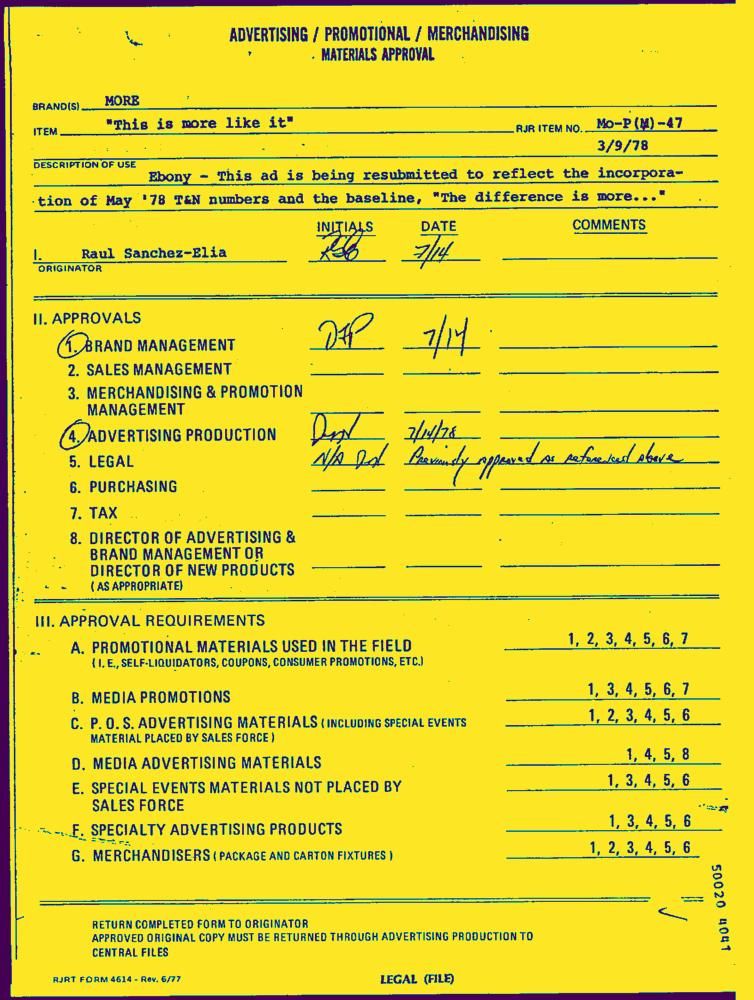 ADVERTISING / PROMOTIONAL / MERCHANDISING
MATERIALS APPROVAL
BRAND(S) MORE
ITEM "This is more like it" RJR ITEM NO. Mo-P(M)-47
3/9/78
DESCRIPTION OF USE
Ebony - This ad is being resubmitted to reflect the incorpora-
tion of May '78 T&N numbers and the baseline, "The difference is more..."
INITIALS DATE COMMENTS
I. Raul Sanchez-Elia 7/14
ORIGINATOR
II. APPROVALS
1. BRAND MANAGEMENT 7/14
2. SALES MANAGEMENT
3. MERCHANDISING & PROMOTION
MANAGEMENT
4. ADVERTISING PRODUCTION 7/14/78
5. LEGAL N/A Previously approved as referenced above
6. PURCHASING
7. TAX
8. DIRECTOR OF ADVERTISING &
BRAND MANAGEMENT OR
DIRECTOR OF NEW PRODUCTS
(AS APPROPRIATE)
III. APPROVAL REQUIREMENTS
A. PROMOTIONAL MATERIALS USED IN THE FIELD 1, 2, 3, 4, 5, 6, 7
(I.E., SELF-LIQUIDATORS, COUPONS, CONSUMER PROMOTIONS, ETC.)
B. MEDIA PROMOTIONS 1, 3, 4, 5, 6, 7
C. P.O.S. ADVERTISING MATERIALS (INCLUDING SPECIAL EVENTS 1, 2, 3, 4, 5, 6
MATERIAL PLACED BY SALES FORCE)
D. MEDIA ADVERTISING MATERIALS 1, 4, 5, 8
E. SPECIAL EVENTS MATERIALS NOT PLACED BY 1, 3, 4, 5, 6
SALES FORCE
F. SPECIALTY ADVERTISING PRODUCTS 1, 3, 4, 5, 6
G. MERCHANDISERS (PACKAGE AND CARTON FIXTURES) 1, 2, 3, 4, 5, 6
50020 4041
RETURN COMPLETED FORM TO ORIGINATOR
APPROVED ORIGINAL COPY MUST BE RETURNED THROUGH ADVERTISING PRODUCTION TO
CENTRAL FILES
RJRT FORM 4614 - Rev. 6/77 LEGAL (FILE)